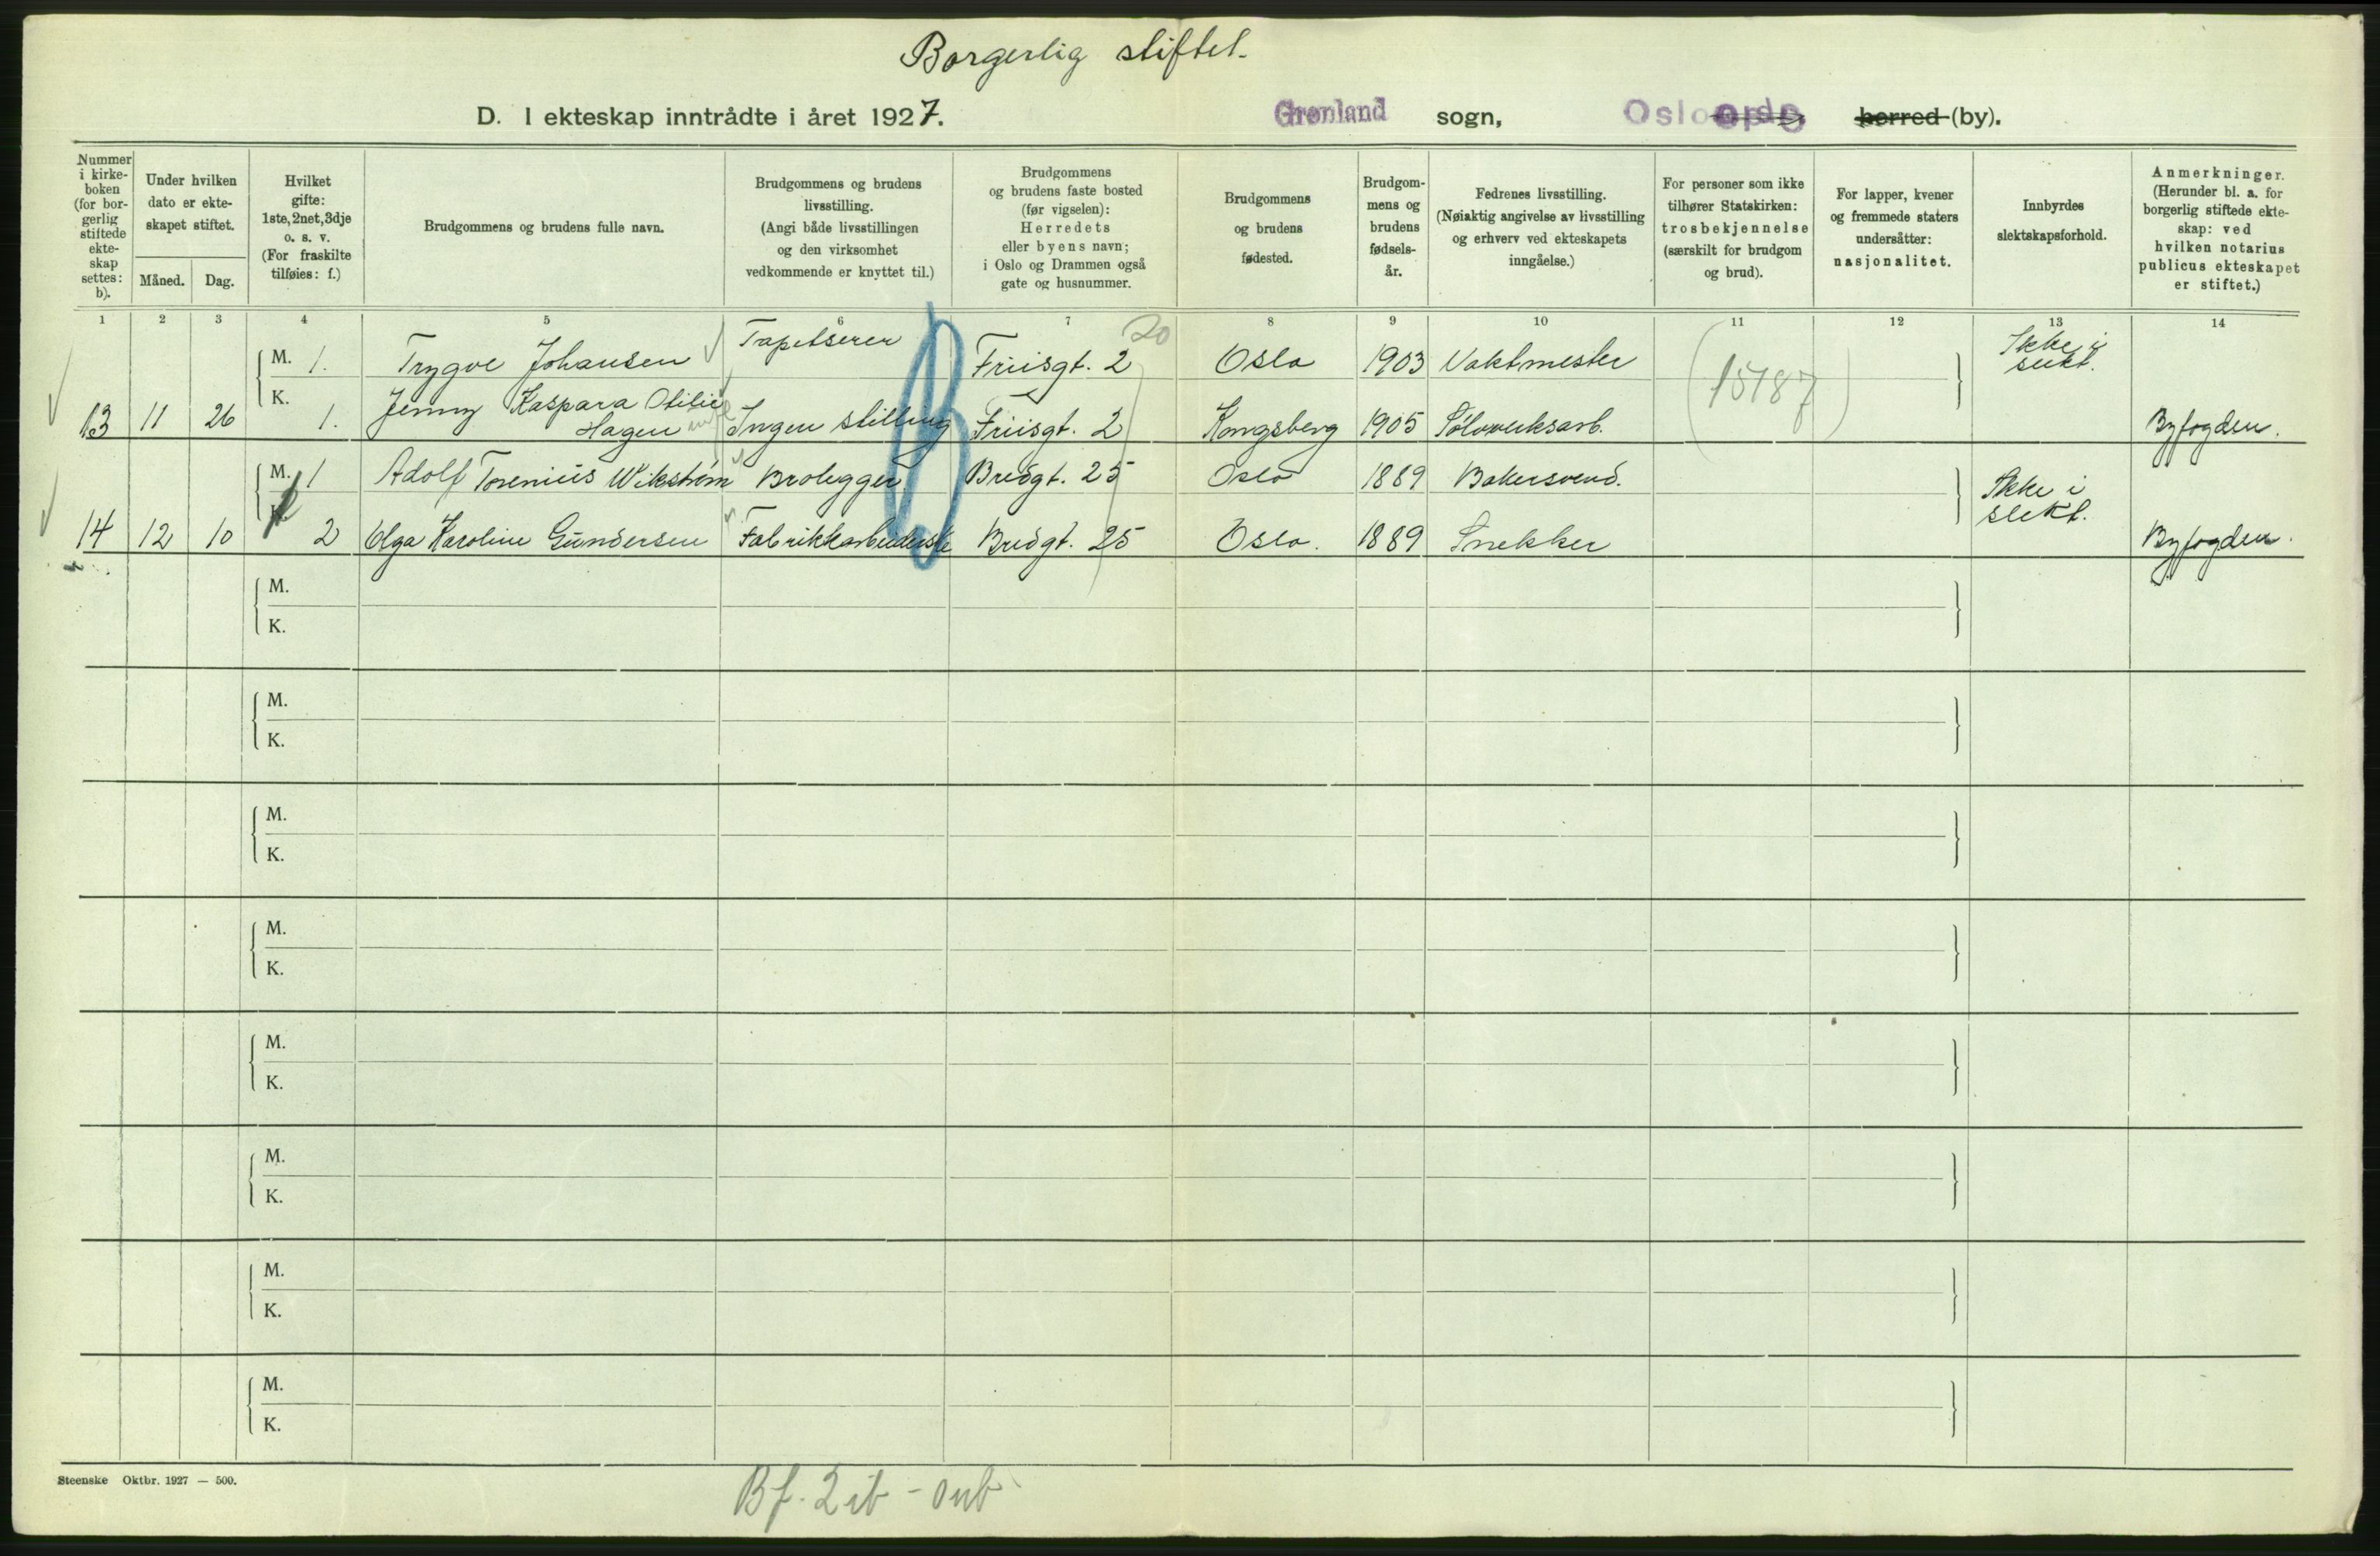 Borgerlig stiftet.
D. I ekteskap inntrådte i året 1927. Grønland sogn, Oslo herred (by).
Nummer i kirke-boken (for bor-gerlig stiftede ekte-skap settes: b).
Under hvilken dato er ekte-skapet stiftet.
Måned. Dag.
Hvilket gifte: 1ste, 2net, 3dje o. s. v. (For fraskilte tilføies: f.)
Brudgommens og brudens fulle navn.
Brudgommens og brudens livsstilling. (Angi både livsstillingen og den virksomhet vedkommende er knyttet til.)
Brudgommens og brudens faste bosted (før vigselen): Herredets eller byens navn; i Oslo og Drammen også gate og husnummer.
Brudgommens og brudens fødested.
Brudgom-mens og brudens fødsels-år.
Fedrenes livsstilling. (Nøiaktig angivelse av livsstilling og erhverv ved ekteskapets inngåelse.)
For personer som ikke tilhører Statskirken: trosbekjennelse (særskilt for brudgom og brud).
For lapper, kvener og fremmede staters undersåtter: nasjonalitet.
Innbyrdes slektskapsforhold.
Anmerkninger. (Herunder bl. a. for borgerlig stiftede ekte-skap: ved hvilken notarius publicus ekteskapet er stiftet.)
1 2 3 4 5 6 7 8 9 10 11 12 13 14
20
M. 1. Trygve Johansen Tapetserer Friisgt. 2 Oslo 1903 Vaktmester (15187) Ikke i slekt.
13 11 26 K. 1. Jenny Kaspara Otilie Hagen Ingen stilling Friisgt. 2 Kongsberg 1905 Sølvverksarb. Byfogden.
B
M. 1 Adolf Torenius Wikstrøm Brolegger Bredgt. 25 Oslo 1889 Bakersvend. Ikke i slekt.
14 12 10 K. 2 Olga Karoline Gundersen Fabrikkarbeiderske Bredgt. 25 Oslo. 1889 Snekker Byfogden.
M.
K.
M.
K.
M.
K.
M.
K.
M.
K.
M.
K.
M.
K.
M.
K.
Steenske Oktbr. 1927 — 500.
Bf. 2 ib -